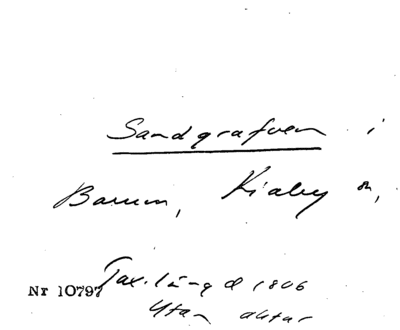 Sandgrafven i
Barum, Kiaby sn,
Tax.längd 1806
Nr 10797
Utan aktar